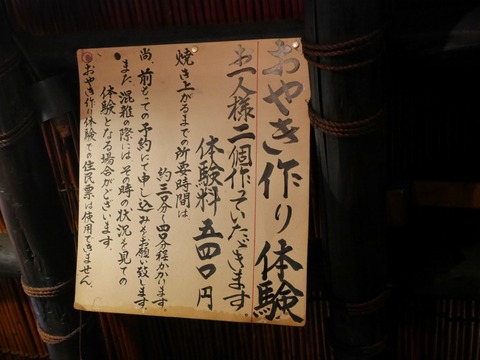 おやき作り体験
お一人様二個作っていただきます。
体験料 五四〇円
焼き上がるまでの所要時間は
約三〇分〜四〇分程かかります。
尚、前もっての予約にて申し込みをお願い致します。
また、混雑の際には、その時の状況を見ての
体験となる場合がございます。
おやき作り体験での住民票は使用できません。